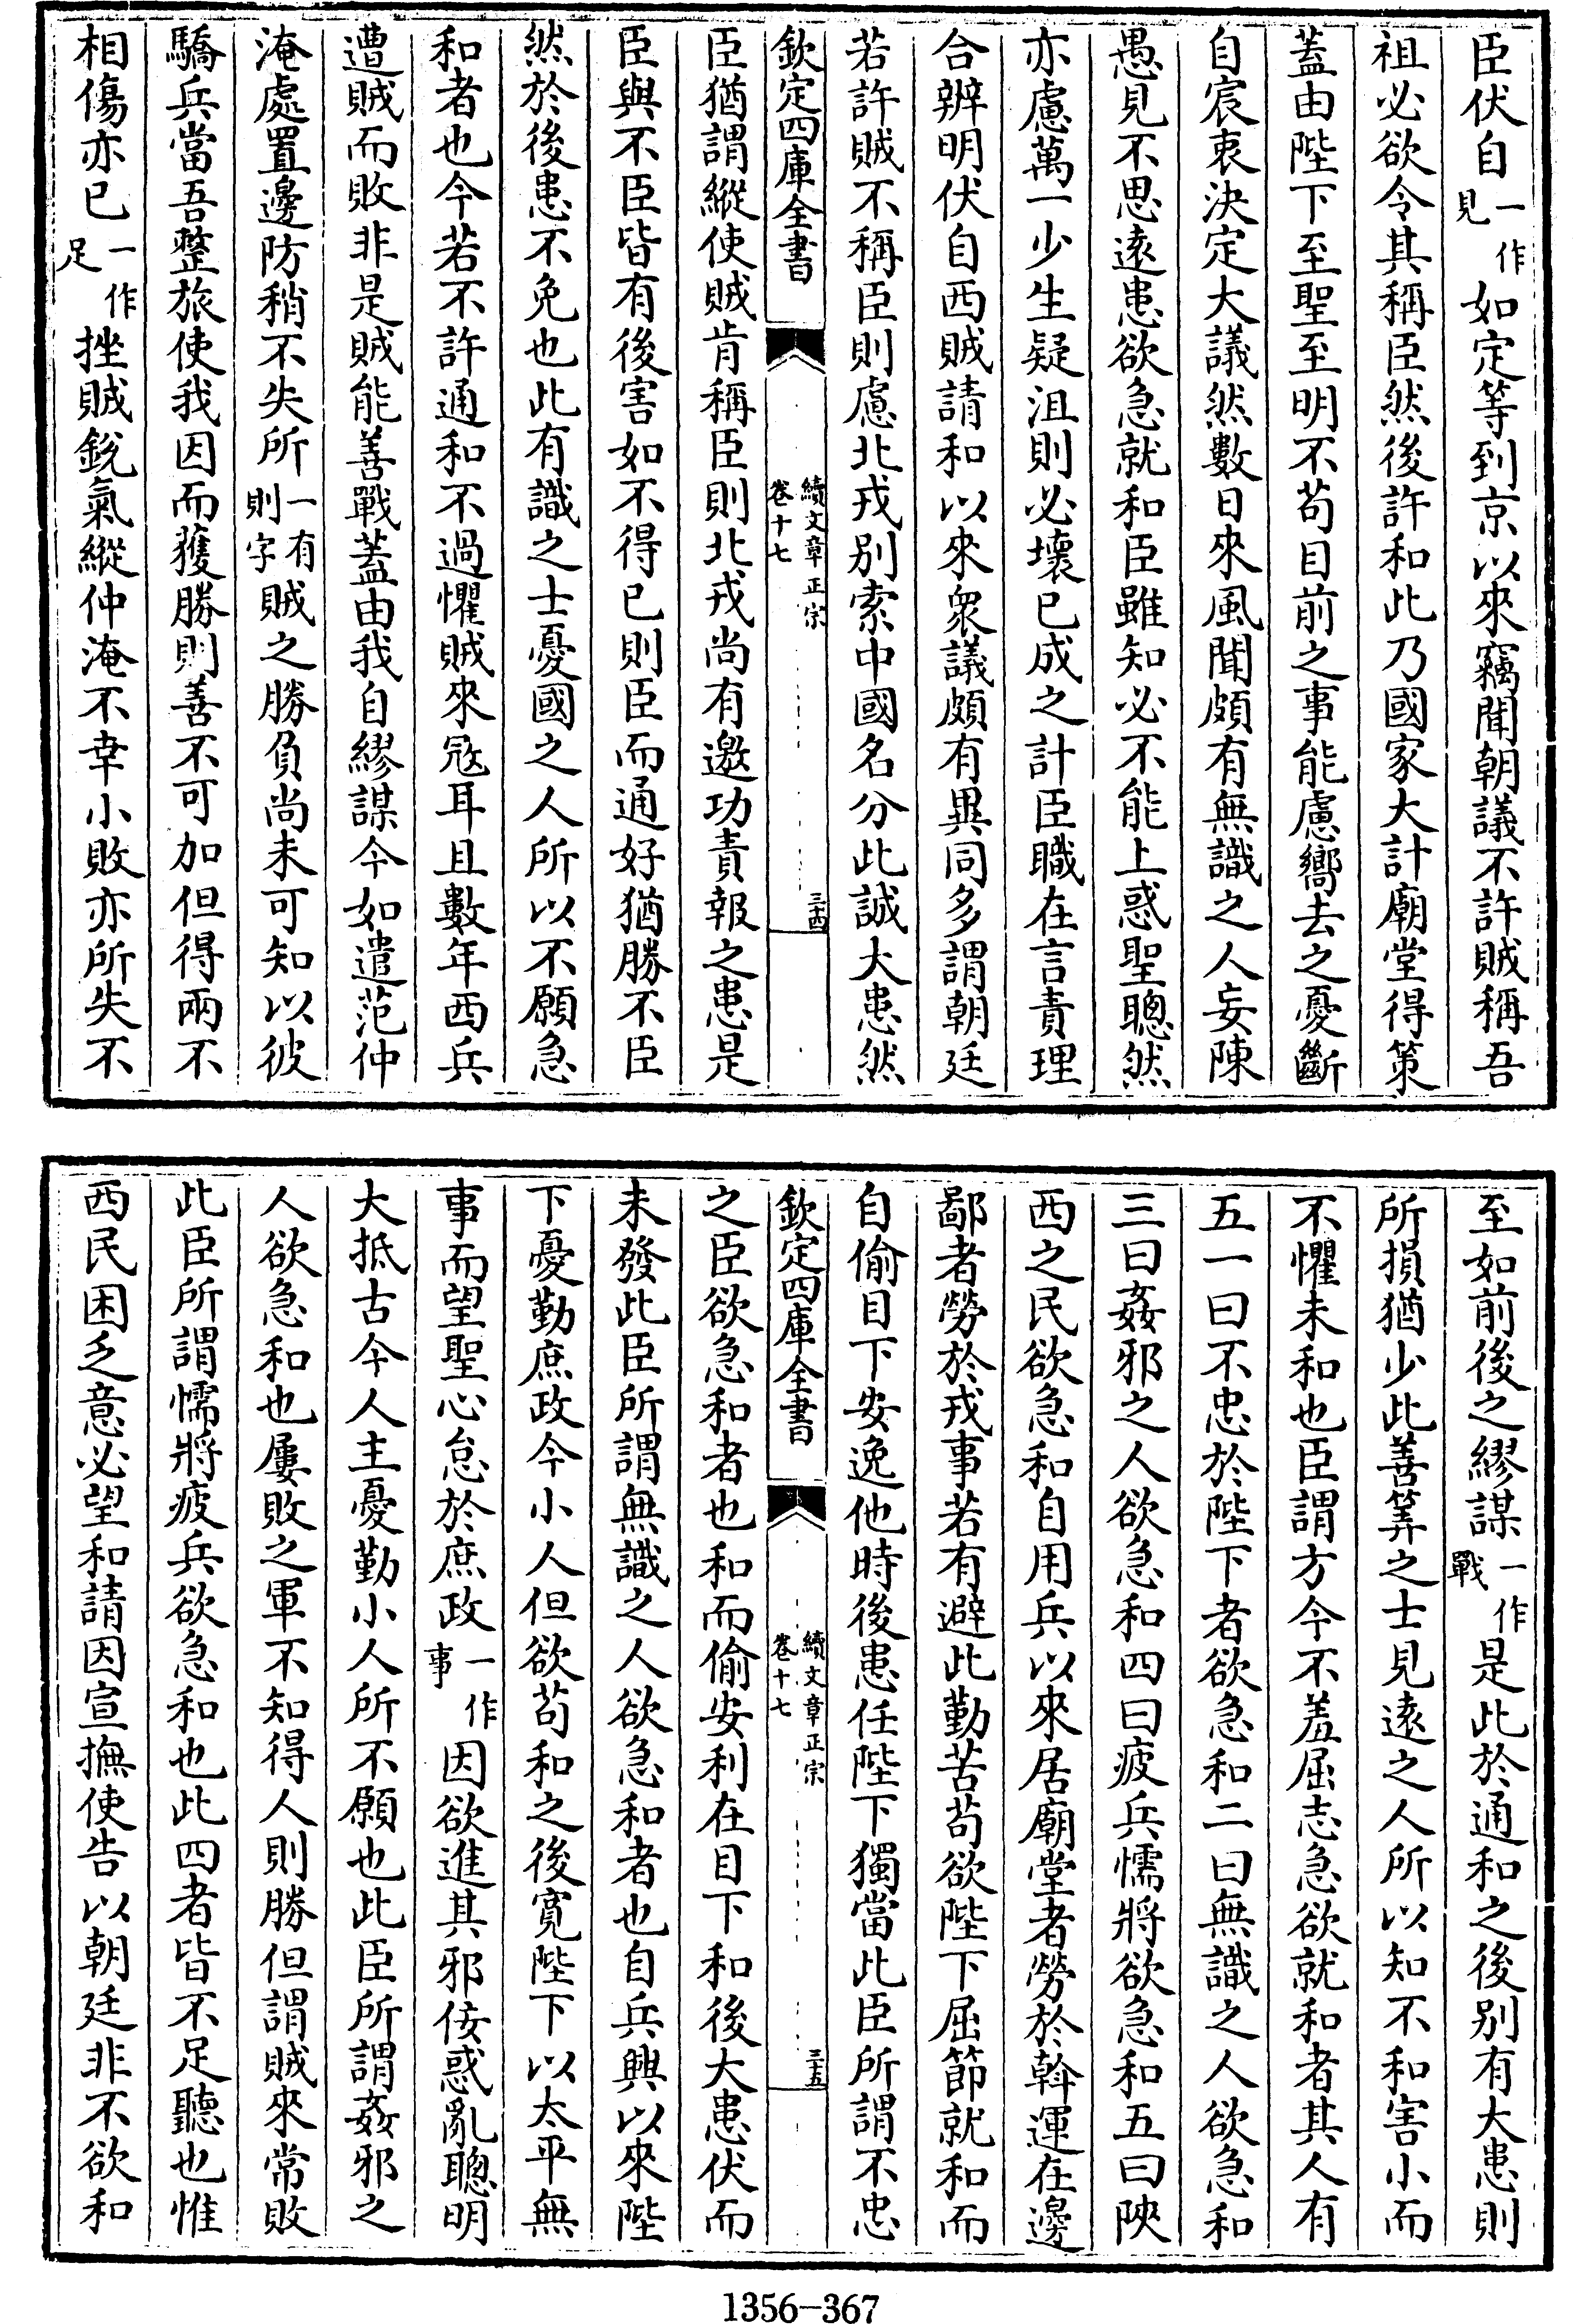 臣伏自一作見如定等到京以來竊聞朝議不許賊稱吾
祖必欲令其稱臣然後許和此乃國家大計廟堂得策
蓋由陛下至聖至明不苟目前之事能慮嚮去之憂斷
自宸衷決定大議然數日來風聞頗有無識之人妄陳
愚見不思遠患欲急就和臣雖知必不能上惑聖聰然
亦慮萬一少生疑沮則必壞已成之計臣職在言責理
合辨明伏自西賊請和以來衆議頗有異同多謂朝廷
若許賊不稱臣則慮北戎別索中國名分此誠大患然
欽定四庫全書
續文章正宗
卷十七
三十四
臣猶謂縱使賊肯稱臣則北戎尚有邀功責報之患是
臣與不臣皆有後害如不得已則臣而通好猶勝不臣
然於後患不免也此有識之士憂國之人所以不願急
和者也今若不許通和不過懼賊來寇耳且數年西兵
遭賊而敗非是賊能善戰蓋由我自繆謀今如遣范仲
淹處置邊防稍不失所一有則字賊之勝負尚未可知以彼
驕兵當吾整旅使我因而獲勝則善不可加但得兩不
相傷亦已一作足挫賊銳氣縱仲淹不幸小敗亦所失不
至如前後之繆謀一作戰是此於通和之後別有大患則
所損猶少此善筭之士見遠之人所以知不和害小而
不懼未和也臣謂方今不羞屈志急欲就和者其人有
五一曰不忠於陛下者欲急和二曰無識之人欲急和
三曰姦邪之人欲急和四曰疲兵懦將欲急和五曰陜
西之民欲急和自用兵以來居廟堂者勞於斡運在邊
鄙者勞於戎事若有避此勤苦苟欲陛下屈節就和而
自偷目下安逸他時後患任陛下獨當此臣所謂不忠
欽定四庫全書
續文章正宗
卷十七
三十五
之臣欲急和者也和而偷安利在目下和後大患伏而
未發此臣所謂無識之人欲急和者也自兵興以來陛
下憂勤庶政今小人但欲苟和之後寬陛下以太平無
事而望聖心怠於庶政一作事因欲進其邪佞惑亂聰明
大抵古今人主憂勤小人所不願也此臣所謂姦邪之
人欲急和也屢敗之軍不知得人則勝但謂賊來常敗
此臣所謂懦將疲兵欲急和也此四者皆不足聽也惟
西民困乏意必望和請因宣撫使告以朝廷非不欲和
1356-367